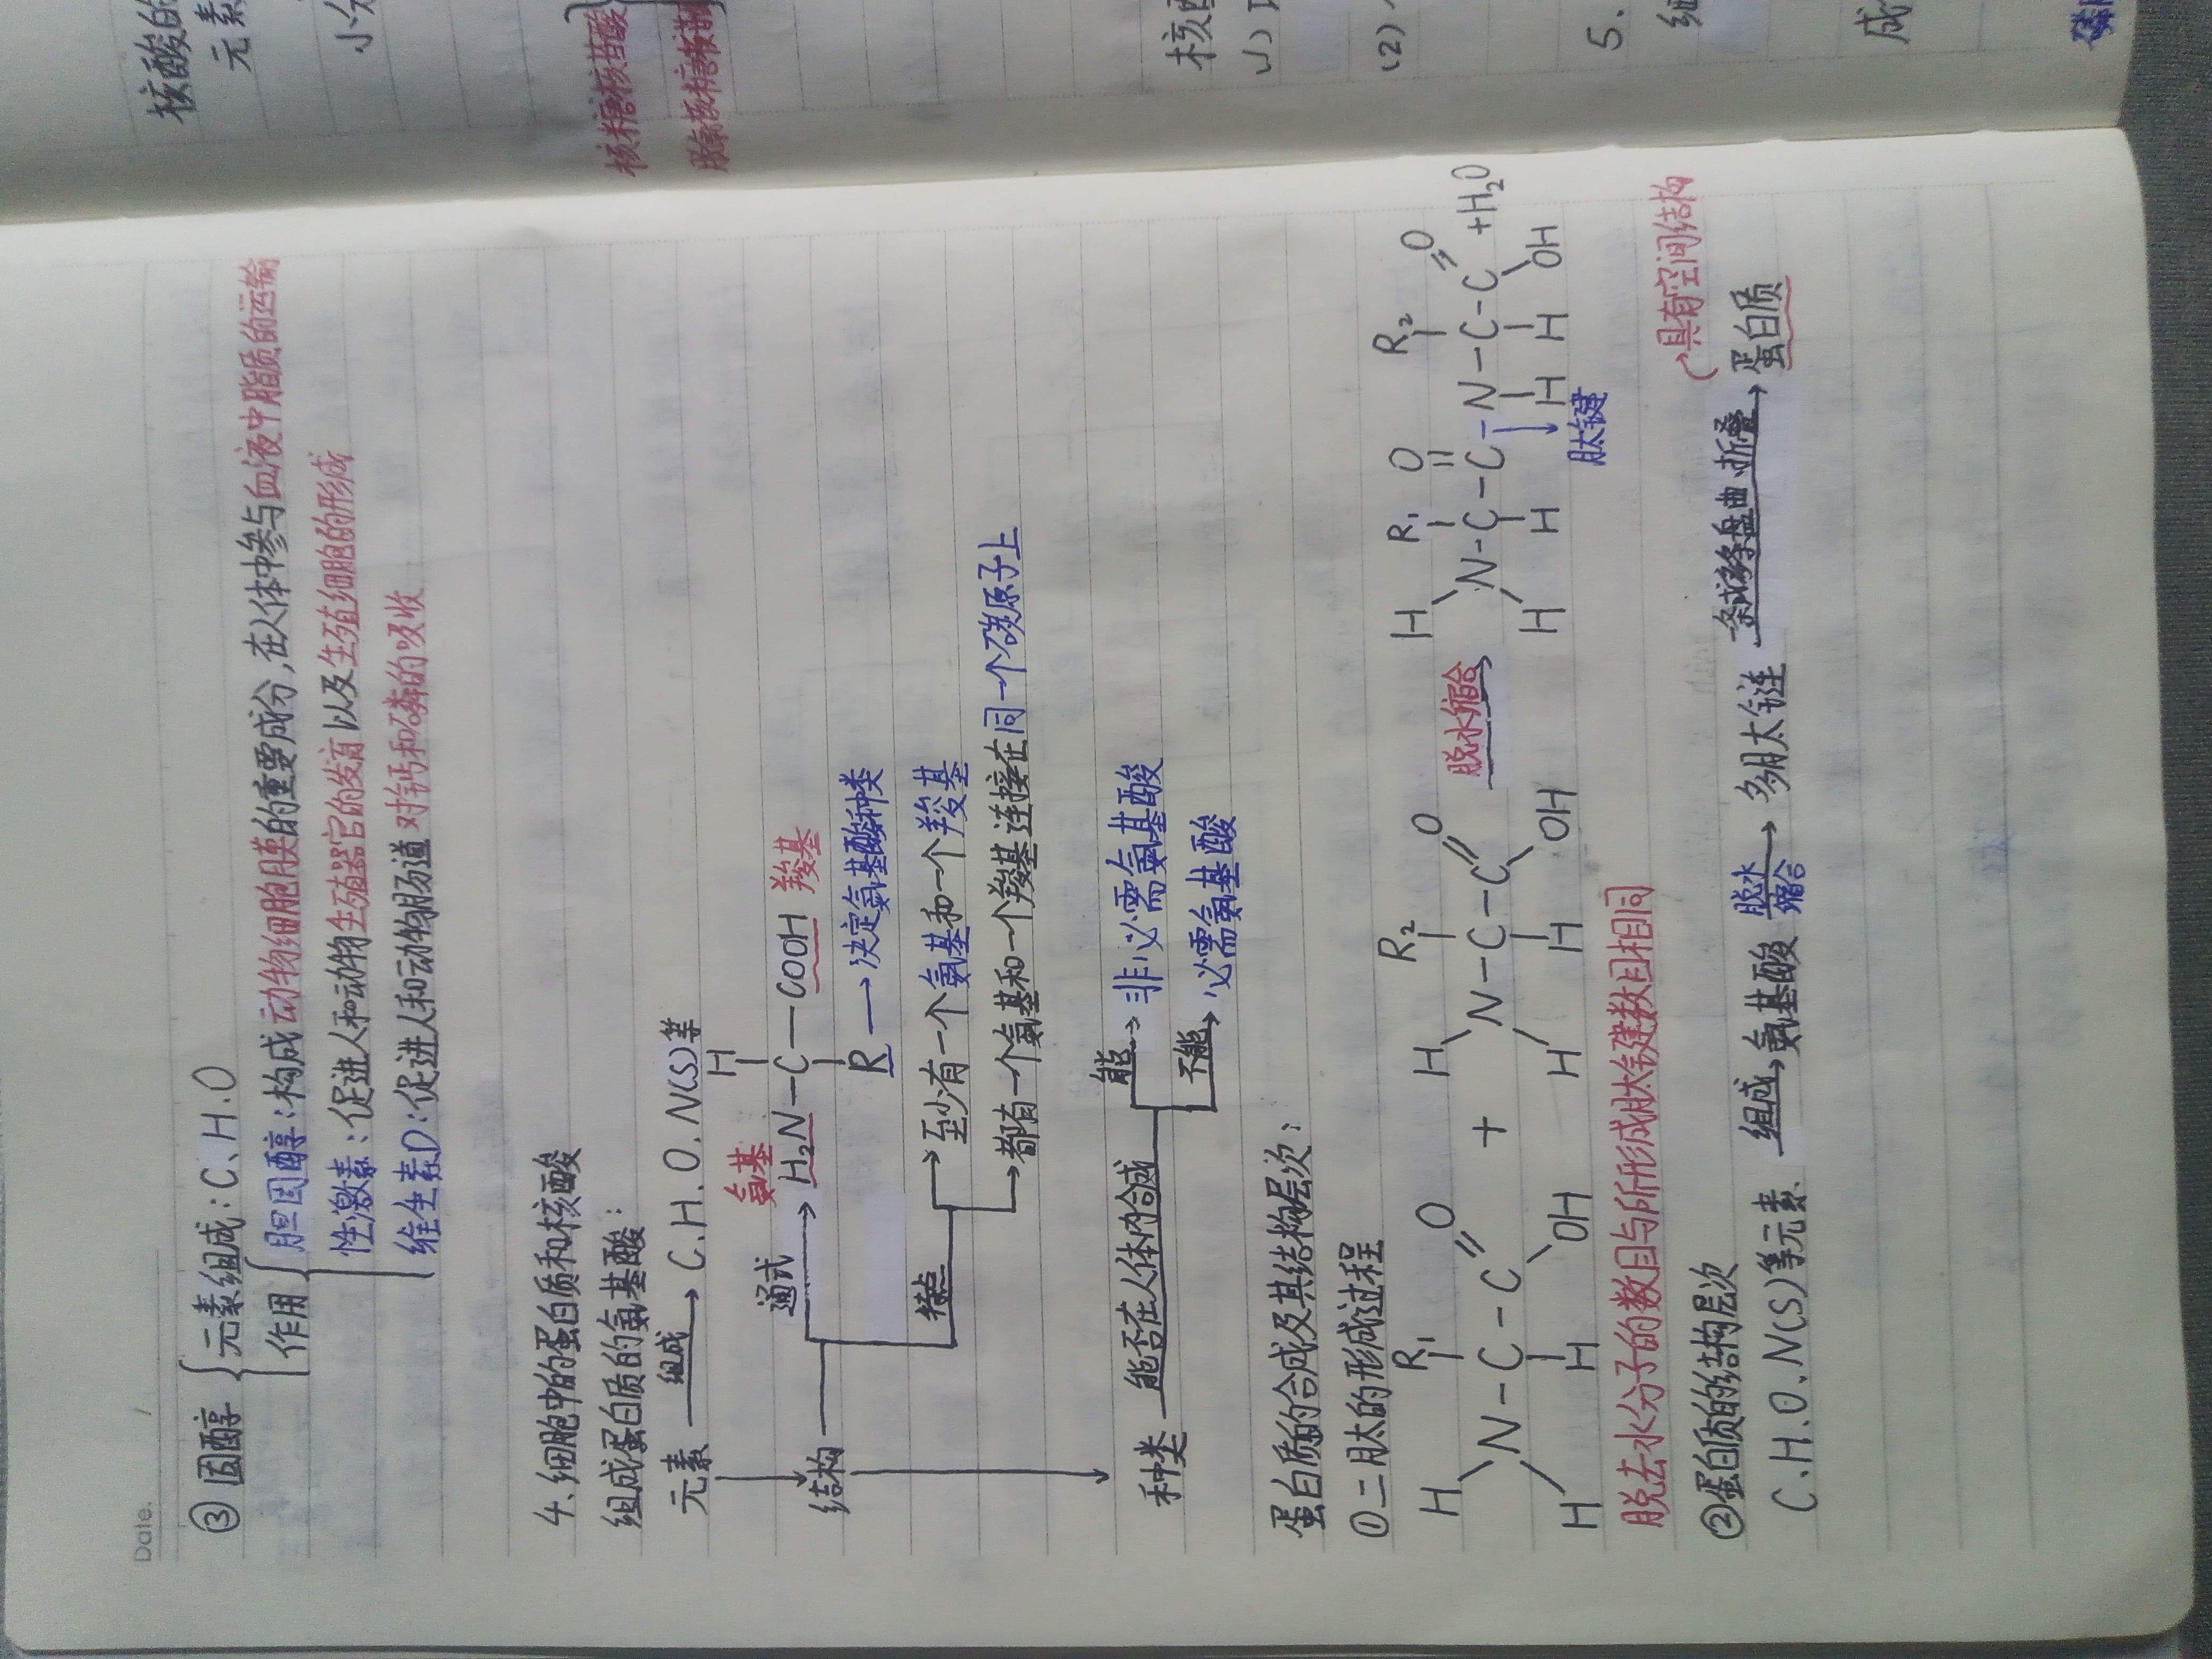 Date. /
③ 固醇 元素组成:C.H.O
作用 胆固醇:构成动物细胞膜的重要成分,在人体中参与血液中脂质的运输
性激素:促进人和动物生殖器官的发育以及生殖细胞的形成
维生素D:促进人和动物肠道对钙和磷的吸收
4、细胞中的蛋白质和核酸
组成蛋白质的氨基酸:
元素 组成→ C.H.O.N(S)等
H
氨基
通式→ H₂N—C—COOH 羧基
R→决定氨基酸种类
结构
特点→至少有一个氨基和一个羧基
→都有一个氨基和一个羧基连接在同一个碳原子上
能→非必需氨基酸
种类 能否在人体内合成
不能→必需氨基酸
蛋白质的合成及其结构层次:
①二肽的形成过程
H R₁ O H R₂ O H R₁ O R₂ O
N-C-C + N-C-C 脱水缩合→ N-C-C-N-C-C +H₂O
H H OH H H OH H H H H OH
肽键
脱去水分子的数目与所形成肽键数目相同
②蛋白质的结构层次
具有空间结构
C.H.O.N(S)等元素 组成→氨基酸 脱水缩合→多肽链 盘曲、折叠→蛋白质
核酸的
元素
小分
核糖核苷酸
核酸
(1)
(2)
5.
细
成